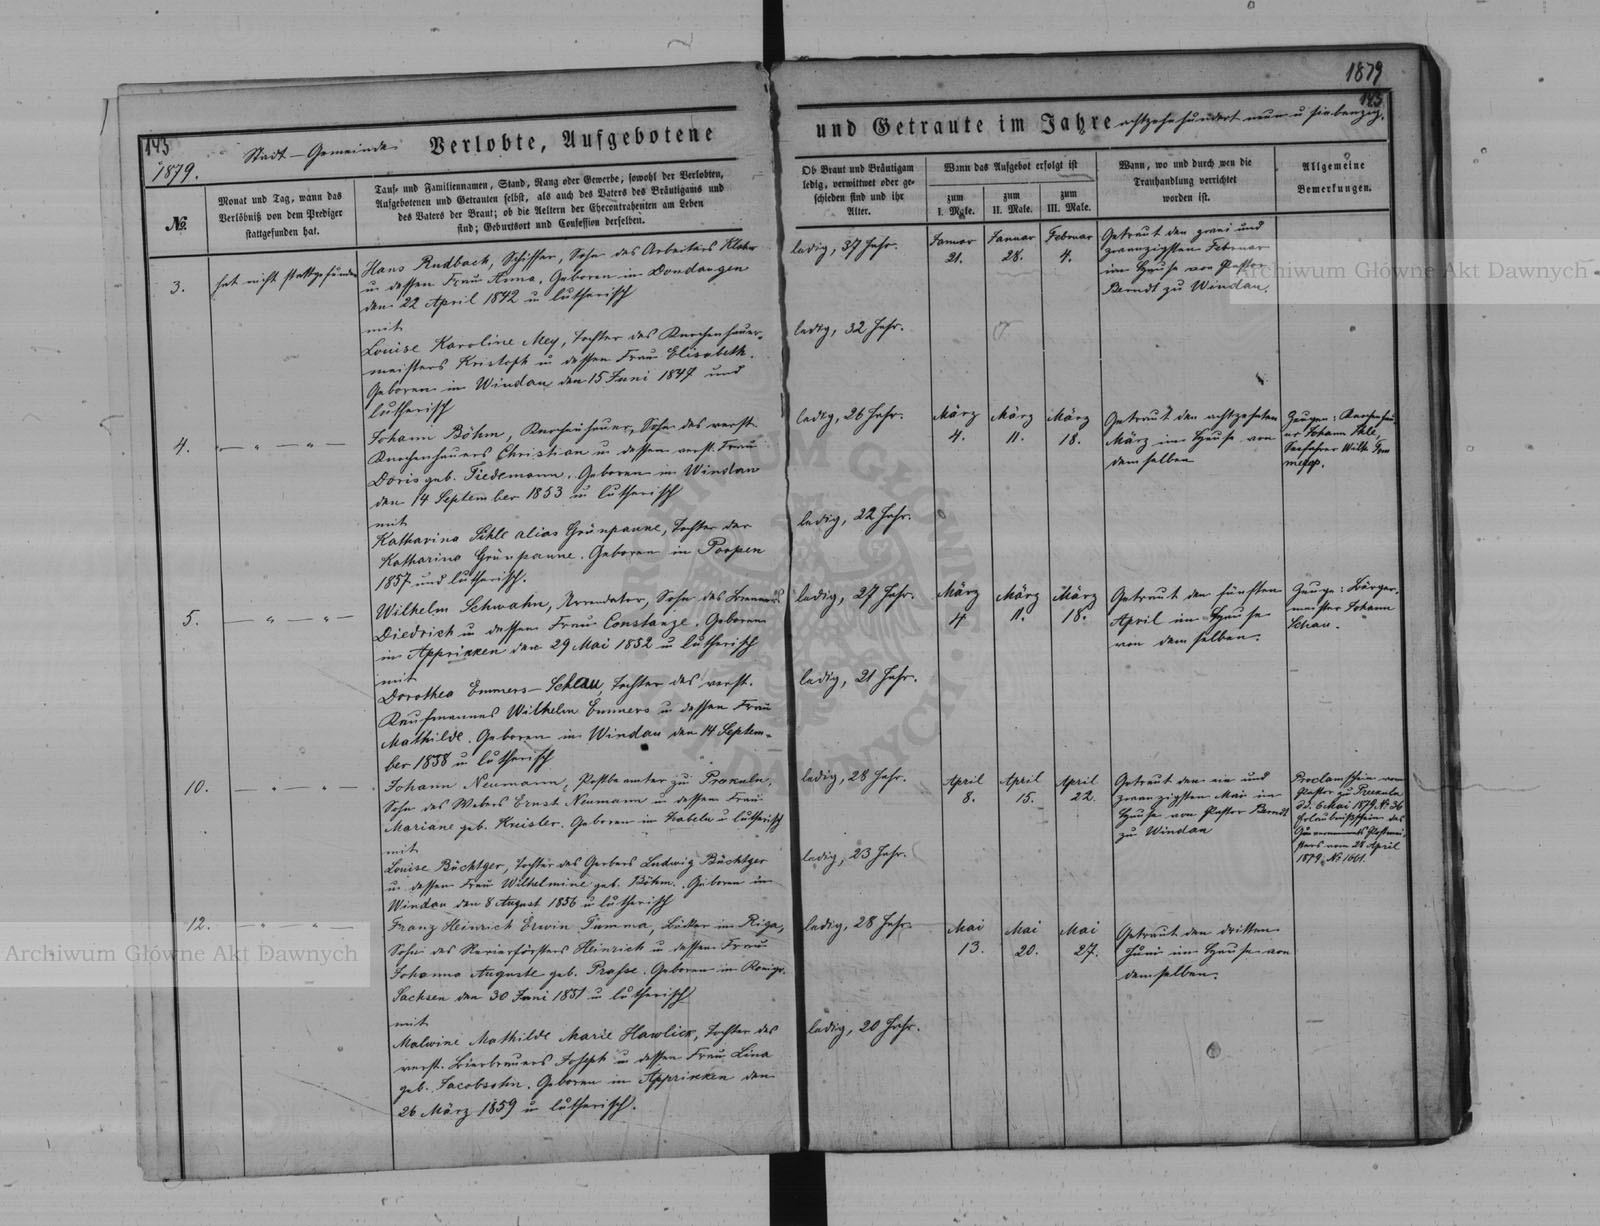 1879
143
143
1879.
Stadt-Gemeinde
Verlobte, Aufgebotene
und Getraute im Jahre achtzehnhundert neun u siebenzig.
№
Monat und Tag, wann das
Verlöbniß von dem Prediger
stattgefunden hat.
Tauf- und Familiennamen, Stand, Rang oder Gewerbe, sowohl der Verlobten,
Aufgebotenen und Getrauten selbst, als auch des Vaters des Bräutigams und
des Vaters der Braut; ob die Aeltern der Ehecontrahenten am Leben
sind; Geburtsort und Confession derselben.
Ob Braut und Bräutigam
ledig, verwittwet oder ge-
schieden sind und ihr
Alter.
Wann das Aufgebot erfolgt ist
zum
I. Male.
zum
II. Male.
zum
III. Male.
Wann, wo und durch wen die
Trauhandlung verrichtet
worden ist.
Allgemeine
Bemerkungen.
3.
hat nicht stattgefunden
Hans Rudbach, Schiffer, Sohn des Arbeiters Klahw
u dessen Frau Anna. Geboren in Dondangen
den 22 April 1842 u lutherisch
mit
Louise Karoline Mey, Tochter des Knochenhauer-
meisters Kristoph u dessen Frau Elisabeth.
Geboren in Windau den 15 Juni 1847 und
lutherisch
ledig, 37 Jahr.
ledig, 32 Jahr.
Januar
21.
Januar
28.
Februar
4.
Getraut den zwei und
zwanzigsten Februar
im Hause von Pastor
Berndt zu Windau.
4.
— " — " —
Johann Böhm, Knochenhauer, Sohn des verst.
Knochenhauers Christian u dessen verst. Frau
Doris geb. Tiedemann. Geboren in Windau
den 14 September 1853 u lutherisch
mit
Katharina Sihle alias Grünpaune, Tochter der
Katharina Grünpaune. Geboren in Poopen
1857 und lutherisch.
ledig, 26 Jahr.
ledig, 22 Jahr.
März
4.
März
11.
März
18.
Getraut den achtzehnten
März im Hause von
demselben
Zeugen: Knochenhau
er Johann Ihle,
Seefahrer Wilh.
5.
— " — " —
Wilhelm Schwahn, Arrendator, Sohn des
Diedrich u dessen Frau Constanze. Geboren
in Apprikken den 29 Mai 1852 u lutherisch
mit
Dorothea Emmers-Schau, Tochter des verst.
Kaufmannes Wilhelm Emmers u dessen Frau
Mathilde. Geboren in Windau den 14 Septem-
ber 1858 u lutherisch
ledig, 27 Jahr.
ledig, 21 Jahr.
März
4.
März
11.
März
18.
Getraut den fünften
April im Hause
von demselben.
Zeuge: Bürger-
meister Johann
Schau.
10.
— " — " —
Johann Neumann, Postbeamter zu Prekuln,
Sohn des Webers Ernst Neumann u dessen Frau
Mariane geb. Kreisler. Geboren in Zabeln u lutherisch
mit
Louise Büchtger, Tochter des Gerbers Ludwig Büchtger
u dessen Frau Wilhelmine geb. Böhm. Geboren in
Windau den 8 August 1856 u lutherisch
ledig, 28 Jahr.
ledig, 23 Jahr.
April
8.
April
15.
April
22.
Getraut den ein und
zwanzigsten Mai im
Hause von Pastor Berndt
zu Windau
Proclamschein vom
Pastor zu Preekuln
d.d. 6 Mai 1879. № 36
Erlaubnißschein des
Gouvernements Postmei-
sters vom 28 April
1879, № 1661.
12.
— " — " —
Franz Heinrich Erwin Tamma, in Riga,
Sohn des Revierförsters Heinrich u dessen Frau
Johanna Auguste geb. Prasse. Geboren in Königr.
Sachsen den 30 Juni 1851 u lutherisch
mit
Malwine Mathilde Marie Hawlick, Tochter des
verst. Bierbrauers Joseph u dessen Frau Lina
geb. Jacobsohn. Geboren in Apprikken den
26 März 1859 u lutherisch.
ledig, 28 Jahr.
ledig, 20 Jahr.
Mai
13.
Mai
20.
Mai
27.
Getraut den dritten
Juni im Hause von
demselben.
Archiwum Główne Akt Dawnych
Archiwum Główne Akt Dawnych
ARCHIWUM GŁÓWNE AKT DAWNYCH